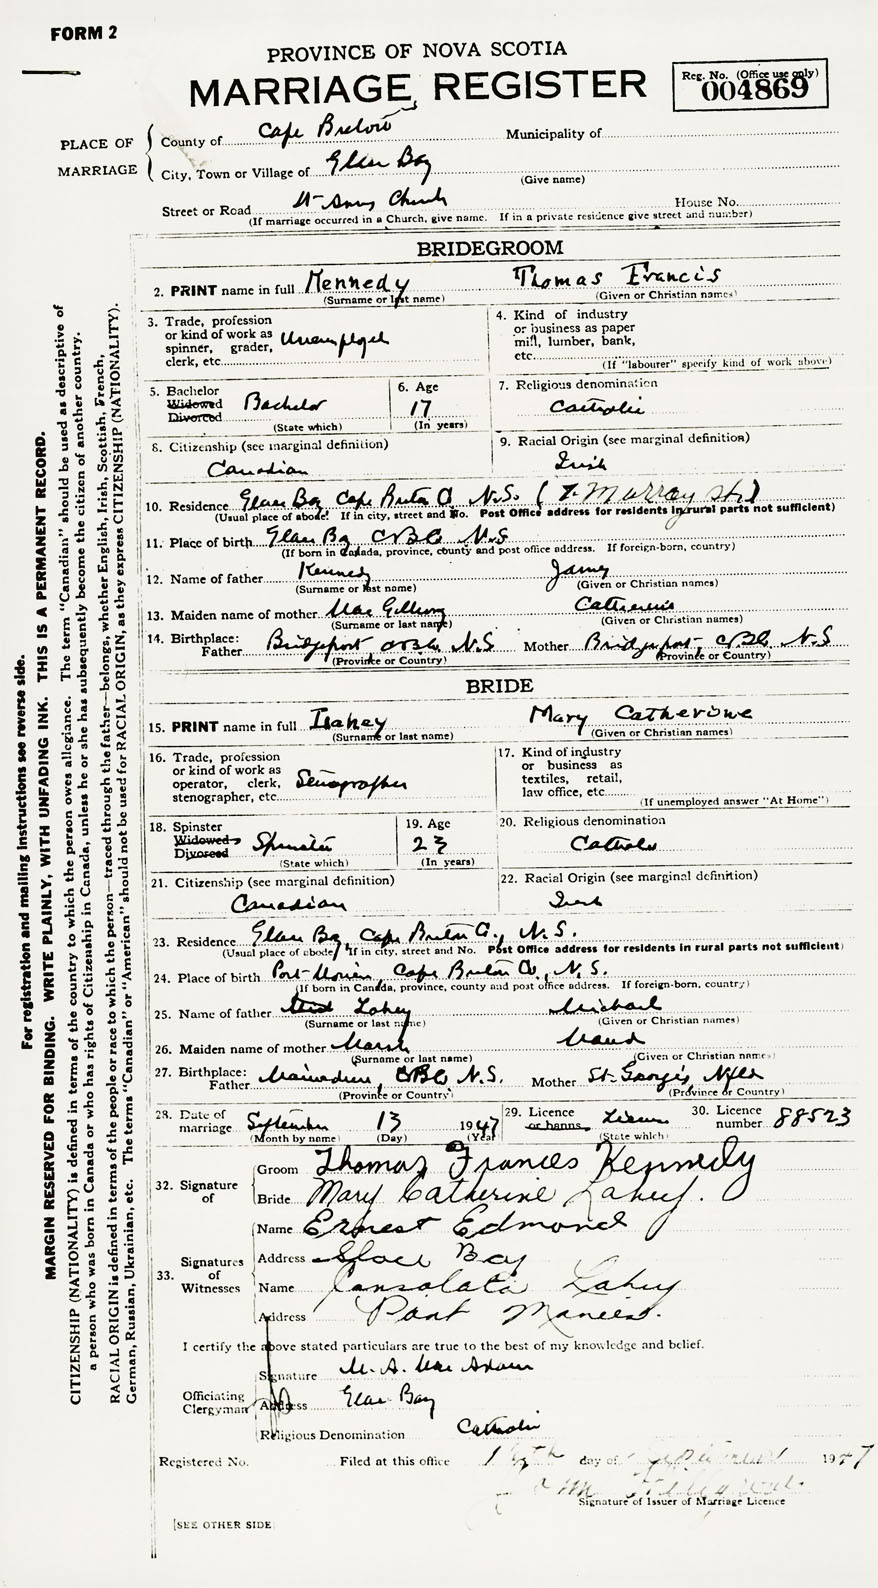 FORM 2
PROVINCE OF NOVA SCOTIA
MARRIAGE REGISTER
Reg. No. (Office use only)
004869
PLACE OF MARRIAGE
County of Cape Breton Municipality of
City, Town or Village of Glace Bay
(Give name)
Street or Road St Anns Church House No.
(If marriage occurred in a Church, give name. If in a private residence give street and number)
BRIDEGROOM
2. PRINT name in full Kennedy Thomas Francis
(Surname or last name) (Given or Christian names)
3. Trade, profession or kind of work as spinner, grader, clerk, etc. Unemployed
4. Kind of industry or business as paper mill, lumber, bank, etc.
(If "labourer" specify kind of work above)
5. Bachelor Widowed Divorced Bachelor
(State which)
6. Age 17
(In years)
7. Religious denomination
Catholic
8. Citizenship (see marginal definition)
Canadian
9. Racial Origin (see marginal definition)
Irish
10. Residence Glace Bay Cape Breton Co N.S. (7 Murray St.)
(Usual place of abode. If in city, street and No. Post Office address for residents in rural parts not sufficient)
11. Place of birth Glace Bay C.B.Co N.S
(If born in Canada, province, county and post office address. If foreign-born, country)
12. Name of father Kennedy James
(Surname or last name) (Given or Christian names)
13. Maiden name of mother Mac Gillivray Catherine
(Surname or last name) (Given or Christian names)
14. Birthplace: Father Bridgeport, C.B.Co. N.S Mother Bridgeport, C.B.Co. N.S
(Province or Country) (Province or Country)
BRIDE
15. PRINT name in full Lahey Mary Catherine
(Surname or last name) (Given or Christian names)
16. Trade, profession or kind of work as operator, clerk, stenographer, etc. Stenographer
17. Kind of industry or business as textiles, retail, law office, etc.
(If unemployed answer "At Home")
18. Spinster Widowed Divorced Spinster
(State which)
19. Age 23
(In years)
20. Religious denomination
Catholic
21. Citizenship (see marginal definition)
Canadian
22. Racial Origin (see marginal definition)
Irish
23. Residence Glace Bay, Cape Breton Co., N.S.
(Usual place of abode. If in city, street and No. Post Office address for residents in rural parts not sufficient)
24. Place of birth Port-Morien, Cape Breton Co., N.S.
(If born in Canada, province, county and post office address. If foreign-born, country)
25. Name of father Lahey Michael
(Surname or last name) (Given or Christian names)
26. Maiden name of mother Marsh Maud
(Surname or last name) (Given or Christian names)
27. Birthplace: Father Mainadieu, C.B.Co N.S. Mother St. George's, Nfld
(Province or Country) (Province or Country)
28. Date of marriage September 13 1947
(Month by name) (Day) (Year)
29. Licence or banns License
(State which)
30. Licence number 88523
32. Signature of
Groom Thomas Francis Kennedy
Bride Mary Catherine Lahey.
33. Signatures of Witnesses
Name Ernest Edmond
Address Glace Bay
Name Consolata Lahey
Address Port Morien.
I certify the above stated particulars are true to the best of my knowledge and belief.
Officiating Clergyman
Signature M. A. Mac Adam
Address Glace Bay
Religious Denomination Catholic
Registered No. Filed at this office day of September 1947
Signature of Issuer of Marriage Licence
[SEE OTHER SIDE
For registration and mailing instructions see reverse side.
MARGIN RESERVED FOR BINDING. WRITE PLAINLY, WITH UNFADING INK. THIS IS A PERMANENT RECORD.
CITIZENSHIP (NATIONALITY) is defined in terms of the country to which the person owes allegiance. The term "Canadian" should be used as descriptive of
a person who was born in Canada or who has rights of Citizenship in Canada, unless he or she has subsequently become the citizen of another country.
RACIAL ORIGIN is defined in terms of the people or race to which the person—traced through the father—belongs, whether English, Irish, Scottish, French,
German, Russian, Ukrainian, etc. The terms "Canadian" or "American" should not be used for RACIAL ORIGIN, as they express CITIZENSHIP (NATIONALITY).